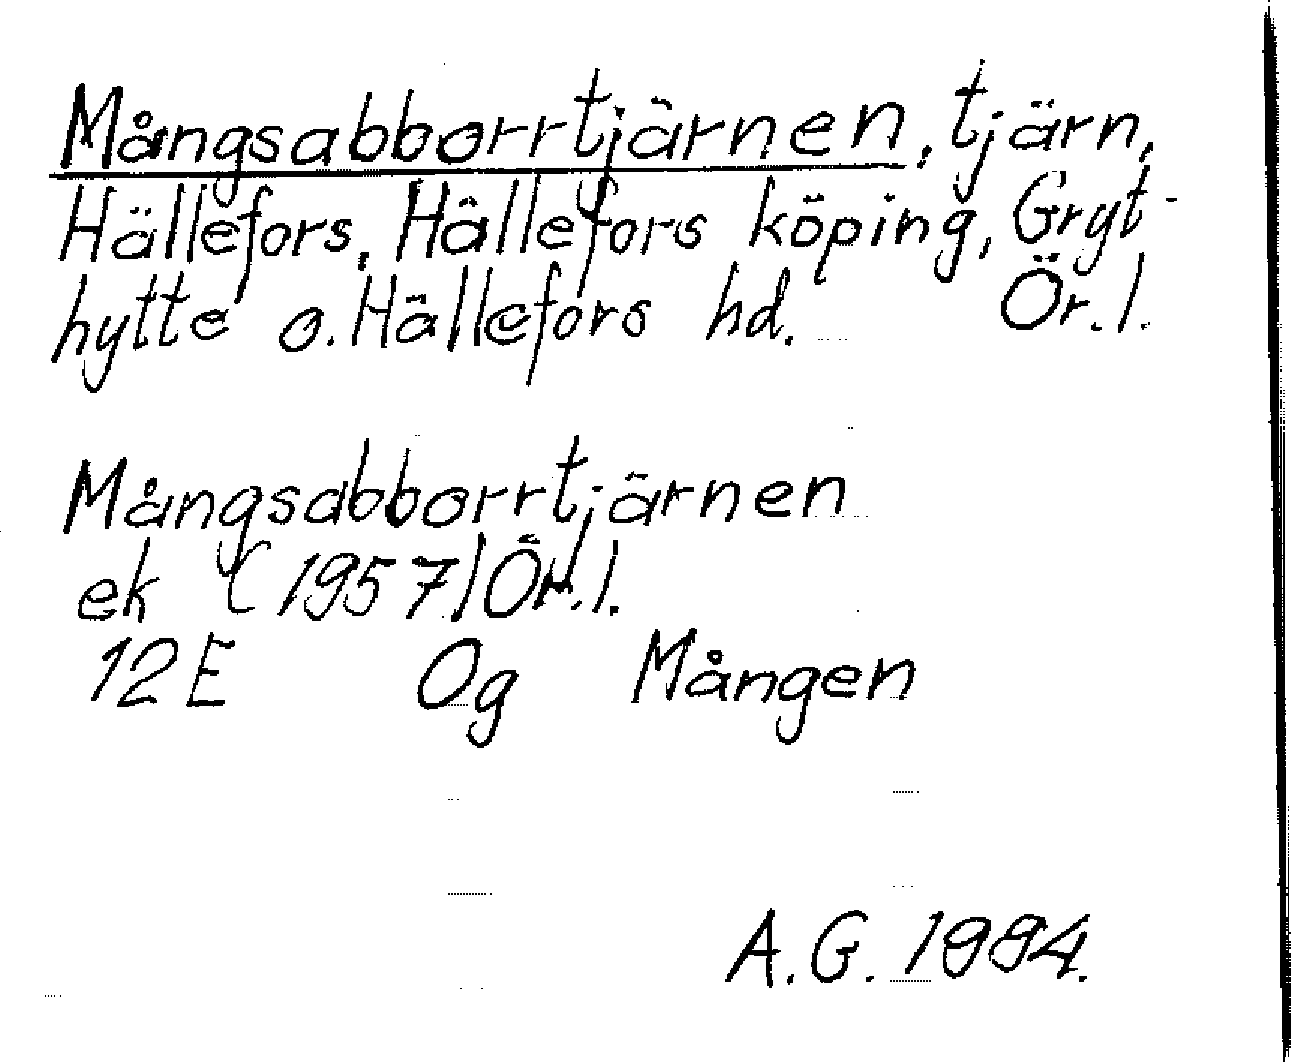 Mångsabborrtjärnen, tjärn,
Hällefors, Hällefors köping, Gryt-
hytte o. Hällefors hd. Ör. l.
Mångsabborrtjärnen
ek (1957) Ör. l.
12E Og Mången
A.G. 1994.